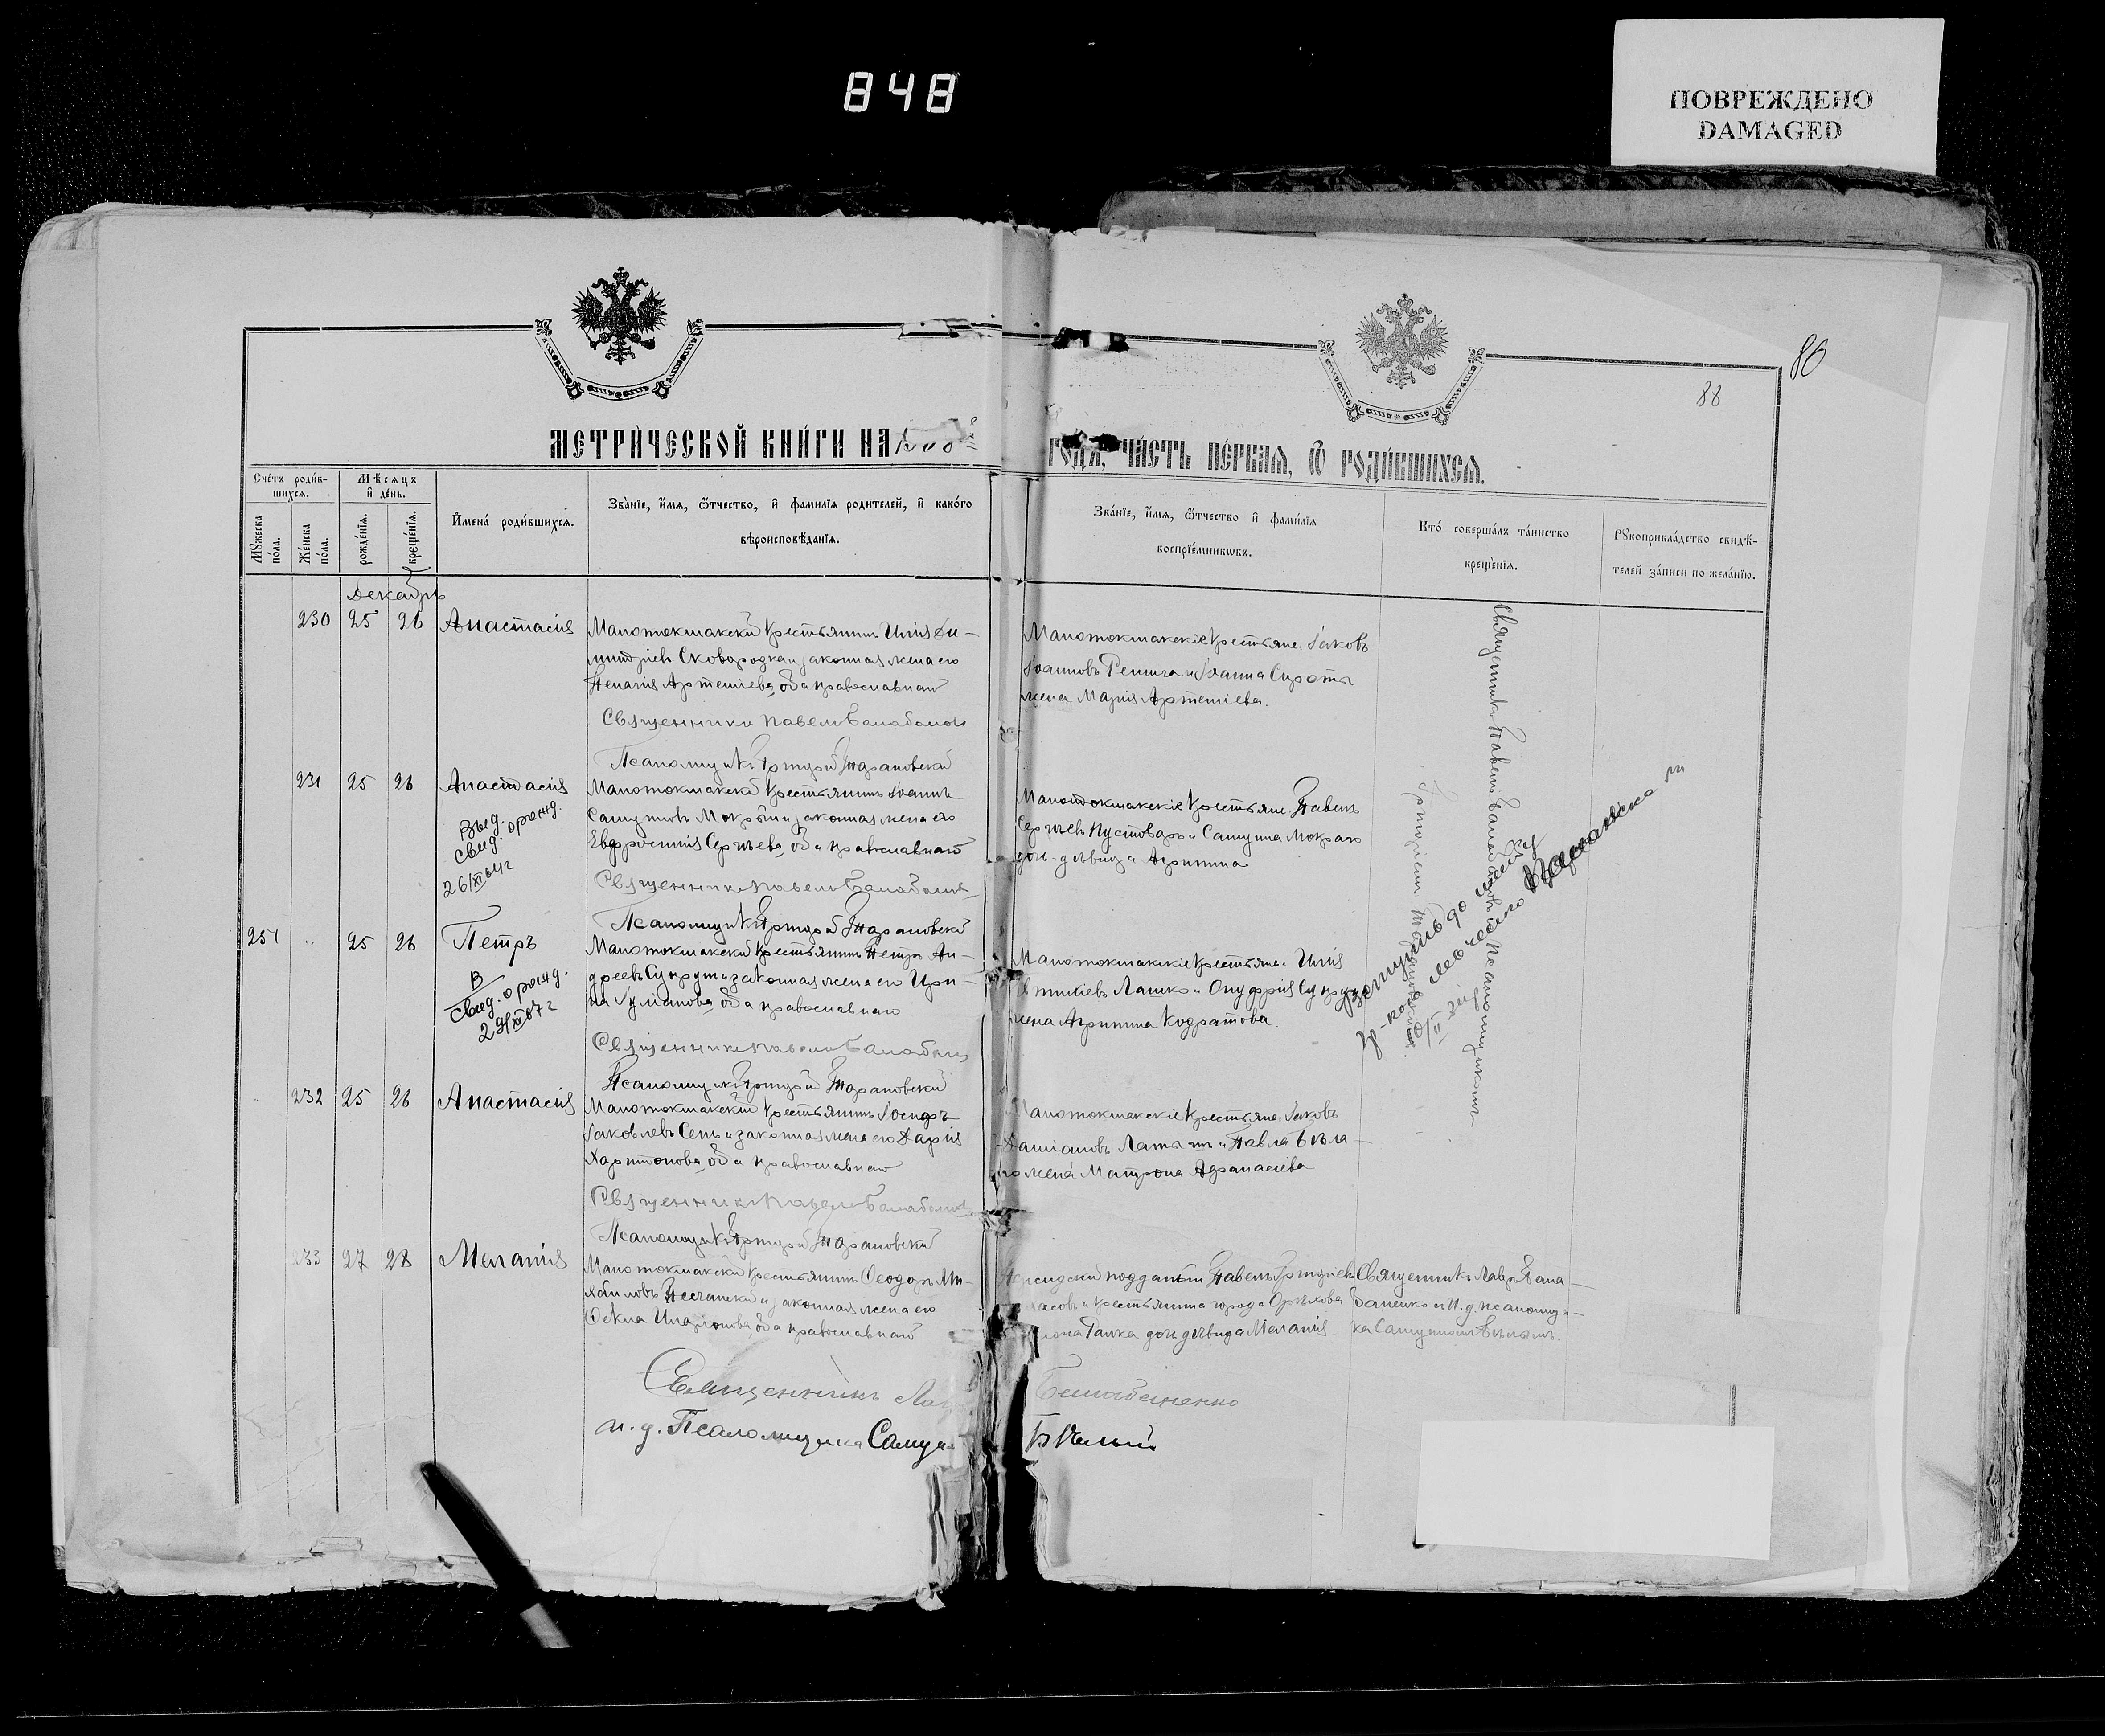 848
ПОВРЕЖДЕНО
DAMAGED
86
88
МЕТРИЧЕСКОЙ КНИГИ НА 1908
ГОДЪ, ЧАСТЬ ПЕРВАЯ, Ѿ РОДИВШИХСЯ.
Счетъ родив-
шихся.
Мѣсяцъ
и день.
Мужеска
пола.
Женска
пола.
рожденія.
крещенія.
Имена родившихся.
Званіе, имя, ѿтчество, и фамилія родителей, и какого
вѣроисповѣданія.
Званіе, имя, ѿтчество и фамилія
воспріемниковъ.
Кто совершалъ таинство
крещенія.
Рукоприкладство свидѣ-
телей записи по желанію.
Декабрь
230 25 26 Анастасія
Малотокмакскій крестьянинъ Илія Ди-
митріевъ Сковородка и законная жена его
Пелагія Артеміева, оба православнаго
Священникъ Павелъ Балабанов
Псаломщикъ Григорій Тарановскій
Малотокмакскіе крестьяне: Іаковъ
Іоанновъ Репига и Іоанна Сироты
жена Марія Артеміева.
231 25 26 Анастасія
Выд.
свид. о рожд.
26/XI 64г
Малотокмакскій крестьянинъ Іоаннъ
Самуиловъ Мокрый и законная жена его
Евфросинія Сергѣева, оба православнаго
Священникъ Павелъ Балабанов
Псаломщикъ Григорій Тарановскій
Малотокмакскіе крестьяне: Павелъ
Сергѣевъ Пустоваръ и Самуила Мокраго
дочь-дѣвица Агрипина
251 " 25 26 Петръ
В
свид. о рожд.
Малотокмакскій крестьянинъ Петръ Ан-
дреевъ Супрунъ и законная жена его Ири-
на Іуліанова, оба православнаго
Священникъ Павелъ Балабанов
Псаломщикъ Григорій Тарановскій
Малотокмакскіе крестьяне: Илія
Лашко и Онуфрія Супрун
жена Агрипина Кодратова.
232 25 26 Анастасія
Малотокмакскій крестьянинъ Іосифъ
Іаковлевъ Сень и законная жена его Дарія
Харитонова, оба православнаго
Священникъ Павелъ Балабанов
Псаломщикъ Григорій Тарановскій
Малотокмакскіе крестьяне: Іаковъ
Даміановъ и Павла Бѣла-
го жена Матрона Афанасіева
233 27 28 Меланія
Малотокмакскій крестьянинъ Ѳеодоръ Ми-
хаиловъ Песчанскій и законная жена его
Ѳекла Иларіонова, оба православнаго
Персидскій подданый Павелъ Григоріевъ
и крестьянина города Орѣхова
Галка дочь дѣвица Меланія
Священникъ Лавръ Бала-
баненко и И. д. псаломщи-
ка Самуиломъ Бѣлымъ.
Священникъ Лав
Балабаненко
и. д. Псаломщика Самуи
Бѣлый